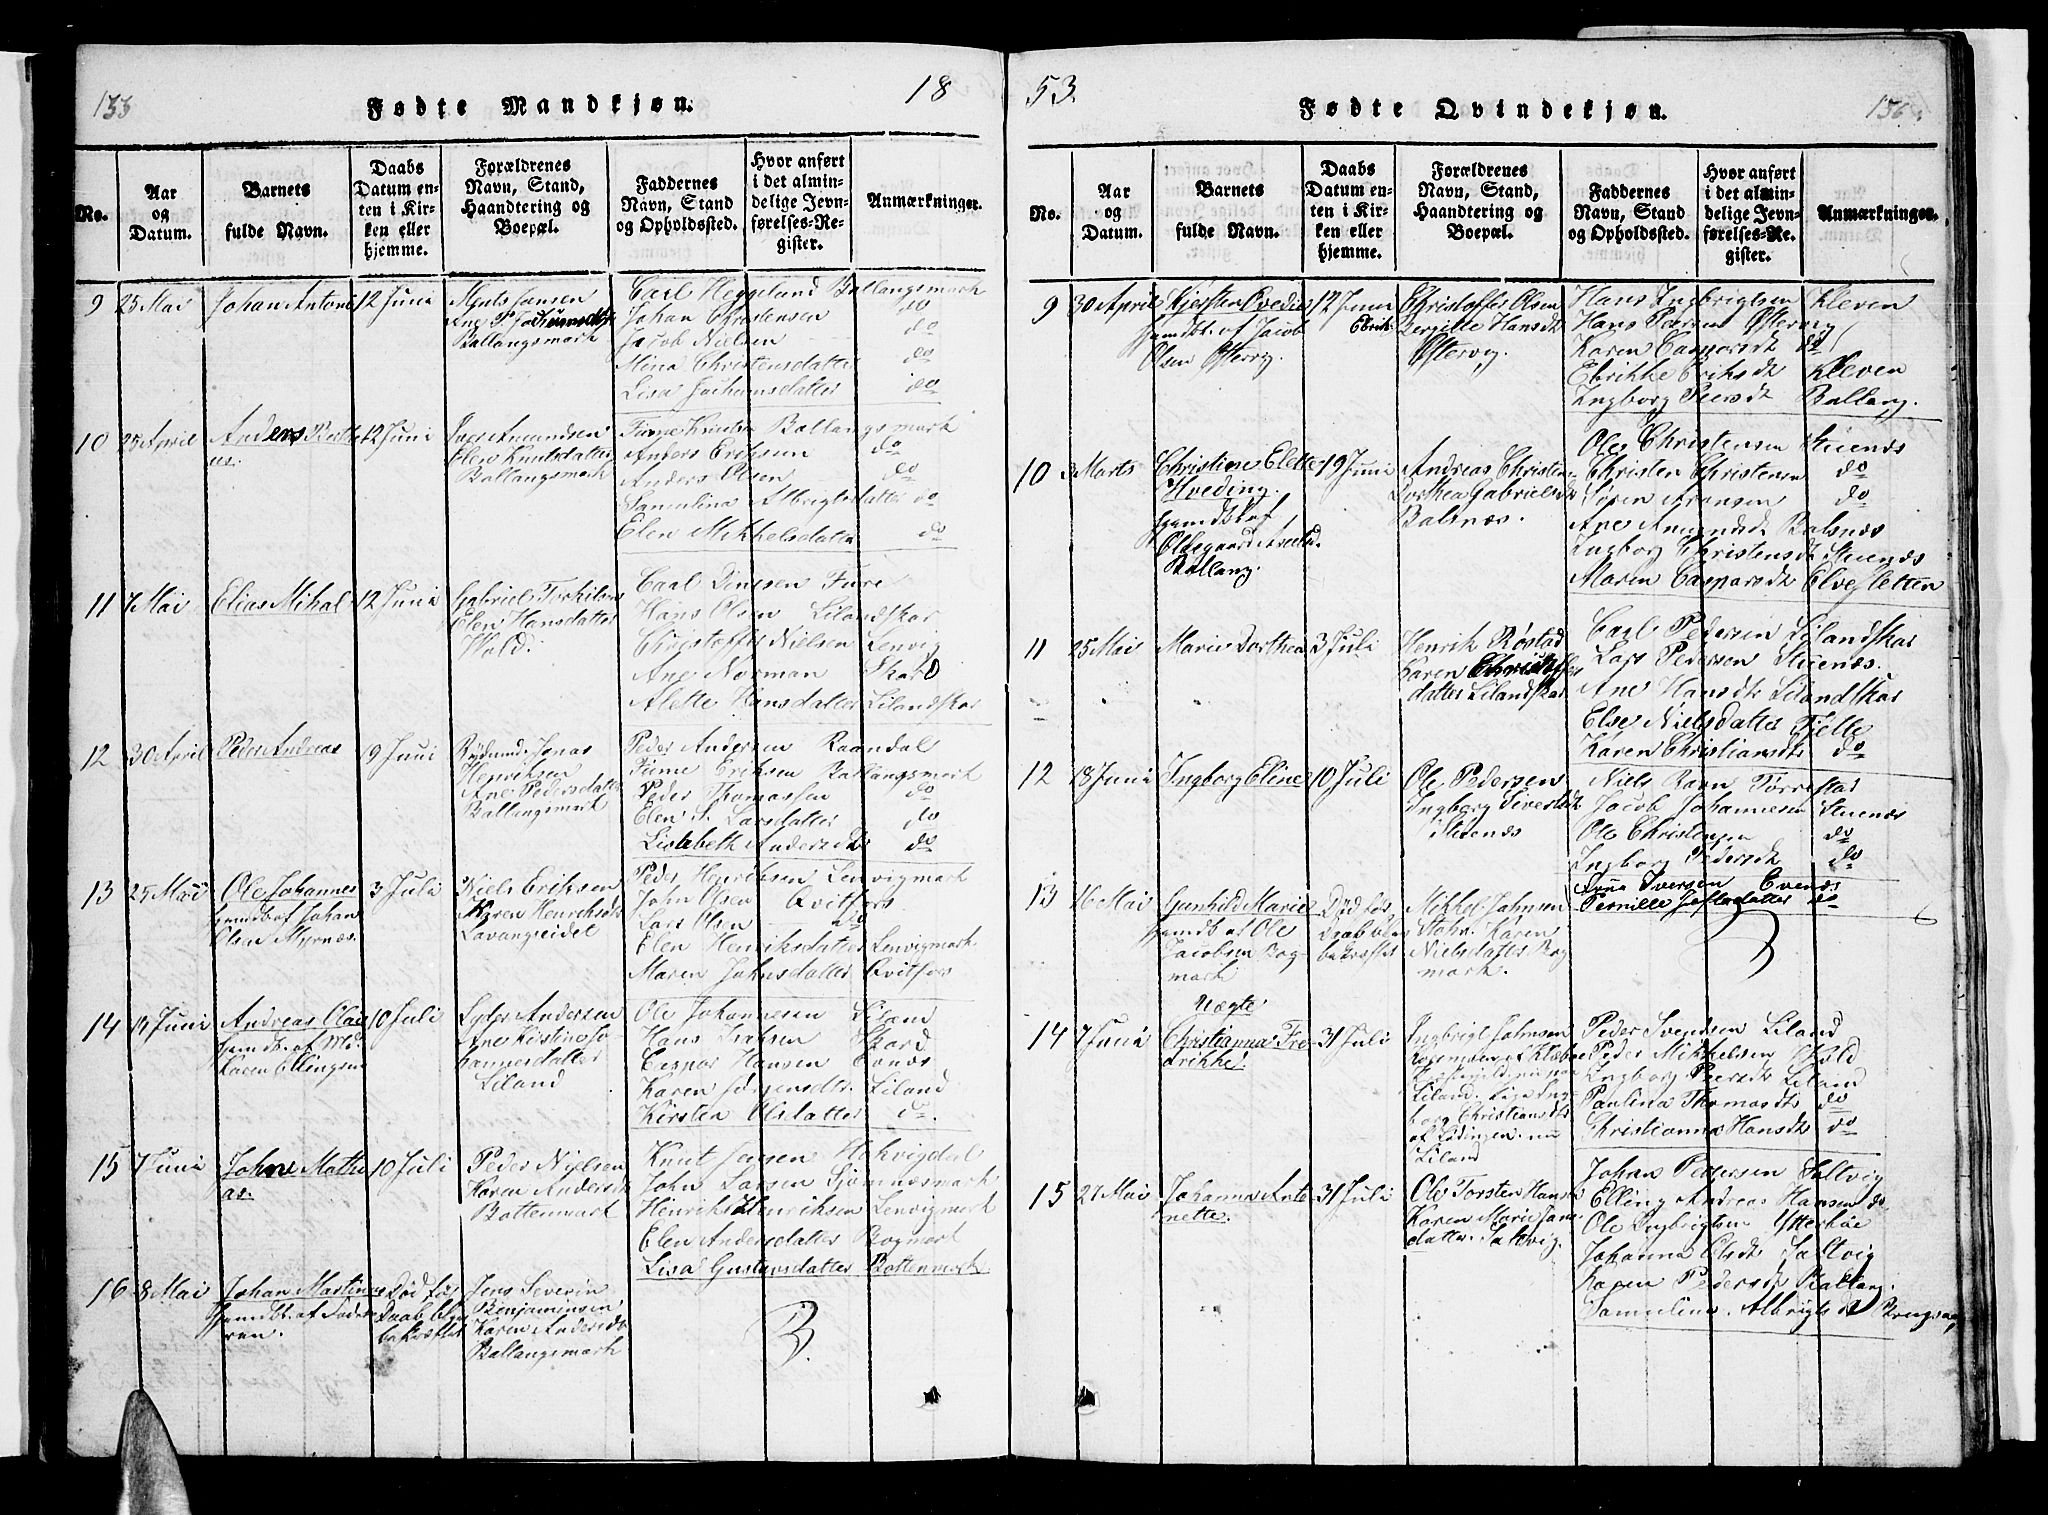 18 53.
Fødte Mandkjøn.
No.
Aar og Datum.
Barnets fulde Navn.
Daabs Datum enten i Kirken eller hjemme.
Forældrenes Navn, Stand, Haandtering og Boepæl.
Faddernes Navn, Stand og Opholdssted.
Hvor anført i det almindelige Jevnførelses-Register.
Anmærkninger.
9 25 Mai Johan Anton 12 Juni
Ballangsmark
Carl Heggelund Ballangsmark
Johan Christensen do
Jacob Nielsen do
Mina Christensdatter do
Lisa Johansdatter do
10 25 April Anders 12 Juni
Iver Amundsen
Elen Knutsdatter
Ballangsmark
Ballangsmark
Anders Eriksen do
Anders Olsen do
Samulina Albrigtsdatter do
Elen Mikkelsdatter do
11 7 Mai Elias Mikal 12 Juni
Gabriel Torkilsen
Elen Hansdatter
Vold.
Hans Olsen Lilandskar
Christoffer Nielsen Lenvig
Ane Norman Skar
Alette Hansdatter Lilandskar
12 30 April Peder Andreas 19 Juni
Jonas
Henriksen
Ane Pedersdatter
Ballangsmark
Peder Andersen Raandal
Eriksen Ballangsmark
Peder Thomassen do
Elen S. Larsdatter do
Lisabeth Andersdt do
13 25 Mai Ole Johannes 3 Juli
hjemdb af Johan
Olsen Myrnæs.
Niels Eriksen
Karen Henriksdt
Lavangseidet
Peder Henriksen Lenvigmark
John Olsen Qvitfors
Lars Olsen do
Elen Henriksdatter Lenvigmark
Maren Johnsdatter Qvitfors
14 14 Juni Andreas Olai 10 Juli
hjemdb. af Md.
Karen Ellingsen
Peder Andersen
Ane Kirstine Jo-
hannesdatter
Liland
Ole Johannesen Liland
Hans Isaksen Skard
Caspar Hansen Evenæs
Karen Jørgensdtr. Liland
Kirsten Olsdatter do.
15 7 Juni Johan Mathi 10 Juli
as.
Peder Nielsen
Karen Andersdt
Bottenmark
Knut Jensen Hakvigdal
John Larsen Sjomnæsmark
Henrik Henriksen Lenvigmark
Elen Andersdatter Bogmark
Lisa Gustavsdatter Bottenmark
16 8 Mai Johan Martinus Død før
hjemdb. af Fade- Daab blev
ren. bekræftet
Jens Severin
Benjaminsen
Karen Andersdt
Ballangsmark
Fødte Qvindekjøn.
No.
Aar og Datum.
Barnets fulde Navn.
Daabs Datum enten i Kirken eller hjemme.
Forældrenes Navn, Stand, Haandtering og Boepæl.
Faddernes Navn, Stand og Opholdssted.
Hvor anført i det almindelige Jevnførelses-Register.
Anmærkninger.
9 30 April Kjersten 12 Juni
hjemdbt. af Jacob
Olsen Østervig.
Christoffer Olsen
Bergitte Hansdt
Østervig.
Hans Ingbrigtsen Kleven
Hans Peersen Østervig
Karen Caspersdt do
Ebrikke Eriksdt Kleven
Ingborg Peersdt Ballang.
10 3 Marts Christine Elette 19 Juni
Hveding.
hjemdbt af
Oldegaard
Ballang.
Andreas Christen-
Dorthea Gabrielsdt
Balsnæs.
Ole Christensen Stuenæs
Christen Christensen do
Søren Aronsen do
Ane Amundsdt Balsnæs
Ingborg Christensdt Stuenæs
Maren Caspersdt Elvesletten
11 25 Mai Marie Dorthea 3 Juli
Henrik Røstad
Karen Christoffers
datter Lilandskar
Carl Pedersen Lilandskar
Lars Pedersen Stuenæs.
Ane Hansdt Lilandskar
Else Nielsdatter Tjelle
Karen Christiansdt do
12 18 Juni Ingborg Eline 10 Juli
Ole Pedersen
Ingborg Sivertsdt
Stuenæs
Niels Ravn Torrestad
Jacob Johannesen Stuenæs
Ole Christensen do
Ingborg Pedersdt do
Iversen Evenæs
Pernille do
13 16 Mai Gunhild Marie Død før
hjemdb af Ole Daab blev
Jacobsen Bog- bekræftet
mark
Mikkel Johnsen
Karen
Nielsdatter Bog
mark.
Uægte
14 7 Juni Christianna Fre- 31 Juli
drikke.
Ingbrigt Johnsen
Liland. Pige Ing-
borg Christiansdt
af Lødingen nu
Liland
Peder Svendsen Liland
Peder Mikkelsen Vold
Ingborg Peersdt Liland
Paulina Thomasdt do
Christianna Hansdt do
15 27 Mai Johanna Anto 31 Juli
nette.
Ole Torsten Hansen
Karen Marie
datter Saltvig.
Johan Pettersen Saltvig
Elling Andreas Hansen do
Ole Ingbrigtsen
Johanna Olsdt Saltvig
Karen Pedersdt Ballang.
Samuline Albrigtsdt